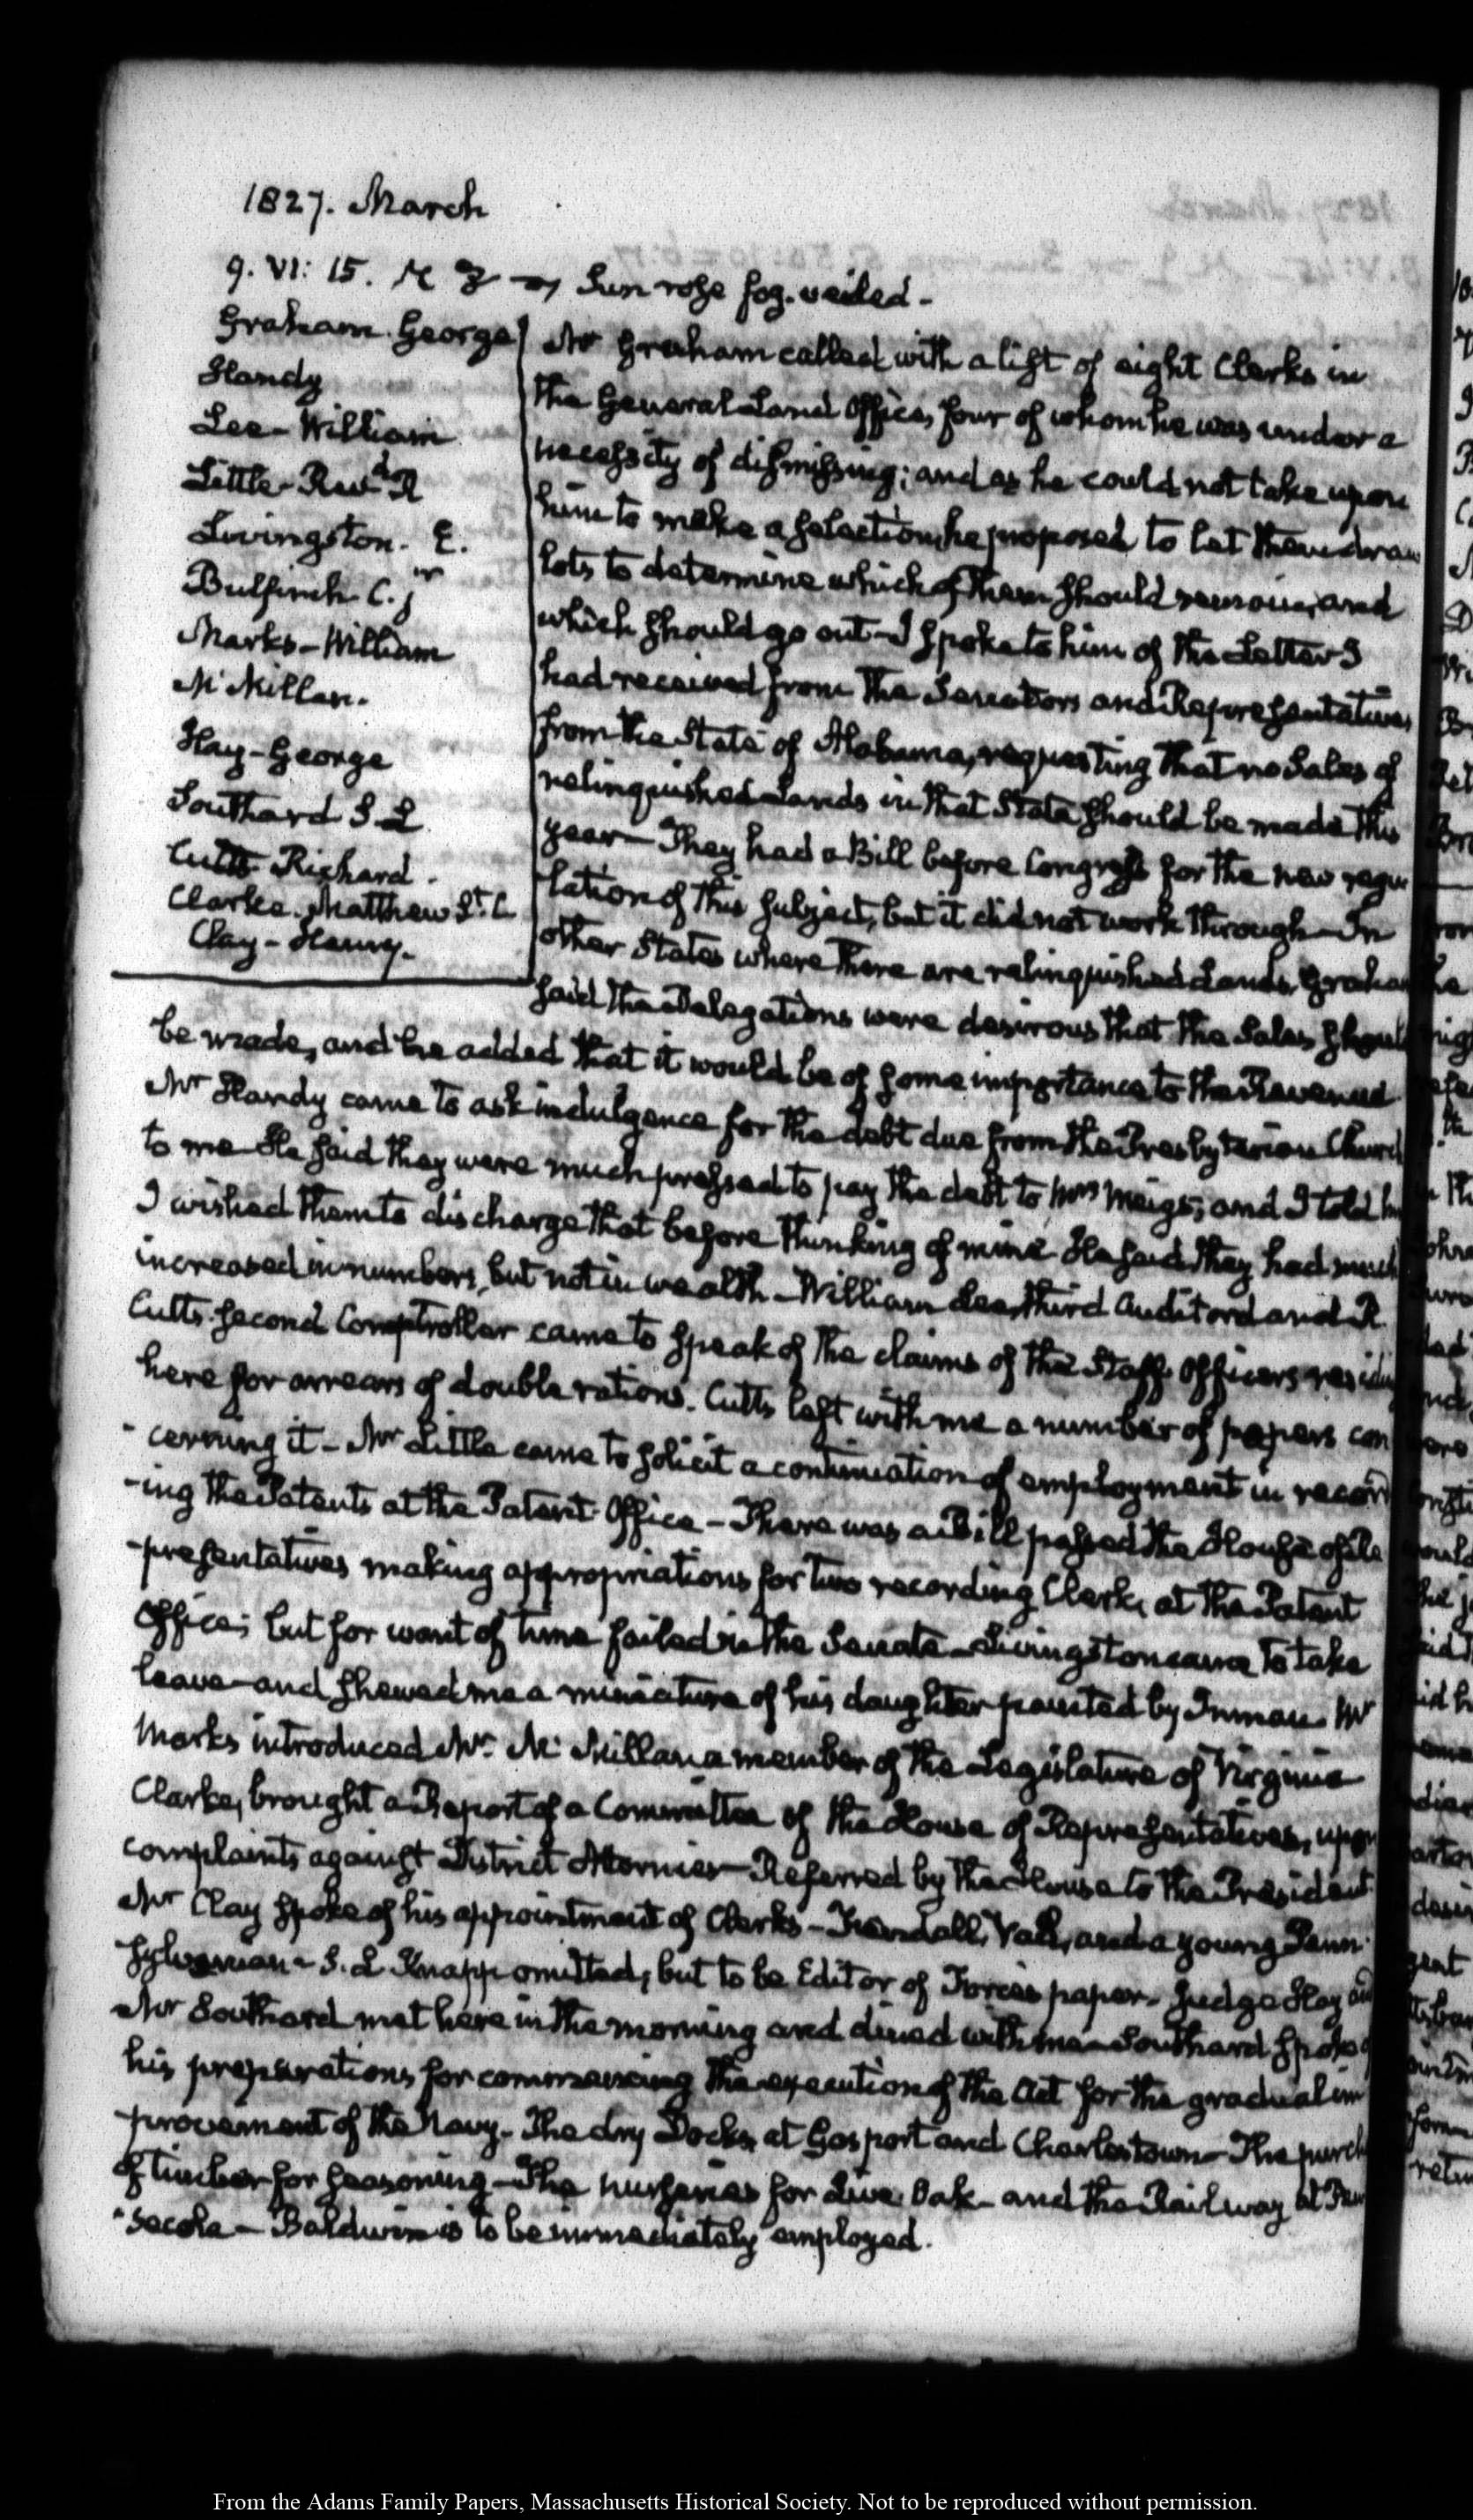 1827. March
9. VI: 15. Sun rose fog-veiled -
Graham. George
Handy
Lee - William
Little - Revd. R
Livingston. E.
Bulfinch C. jr
Marks - William
McMillan.
Hay - George
Southard S. L
Cutts Richard.
Clarke. Matthew St. C
Clay - Henry.
Mr Graham called with a list of eight Clerks in
the General Land Office, four of whom he was under a
necessity of dismissing; and as he could not take upon
him to make a selection, he proposed to let them draw
lots to determine which of them should remain, and
which should go out - I spoke to him of the Letter I
had received from the Senators and Representatives
from the State of Alabama, requesting that no Sales of
relinquished Lands in that State should be made this
year - They had a Bill before Congress for the new regu
lation of this subject, but it did not work through - In
other States where there are relinquished Lands, Graham
said the Delegations were desirous that the Sales should
be made, and he added that it would be of some importance to the Revenue
Mr Handy came to ask indulgence for the debt due from the Presbyterian Church
to me He said they were much pressed to pay the debt to Mrs Meigs; and I told h
I wished them to discharge that before thinking of mine He said they had much
increased in numbers, but not in wealth - William Lee, third Auditor and R.
Cutts second Comptroller came to speak of the claims of the Staff Officers residing
here for arrears of double rations. Cutts left with me a number of papers con
-cerning it - Mr Little came to solicit a continuation of employment in record
-ing the Patents at the Patent Office - There was a Bill passed the House of Re
-presentatives making appropriations for two recording Clerks at the Patent
Office; but for want of time failed in the Senate - Livingston came to take
leave - and shewed me a miniature of his daughter painted by Inman. Mr
Marks introduced Mr. McMillan a member of the Legislature of Virginia
Clarke, brought a Report of a Committee of the House of Representatives, upon
complaints against District Attornies - Referred by the House to the President
Mr Clay spoke of his appointment of Clerks - Trendall, Vail, and a young Penn
sylvanian - S. L. Knapp omitted, but to be Editor of Force's paper - Judge Hay and
Mr Southard met here in the morning and dined with me - Southard spoke of
his preparations for commencing the execution of the Act for the gradual im
-provement of the Navy - The dry Docks, at Gosport and Charlestown - The purch
of timber for seasoning - The nurseries for Live Oak - and the Railway at Pen
-sacola - Baldwin is to be immediately employed.
From the Adams Family Papers, Massachusetts Historical Society. Not to be reproduced without permission.